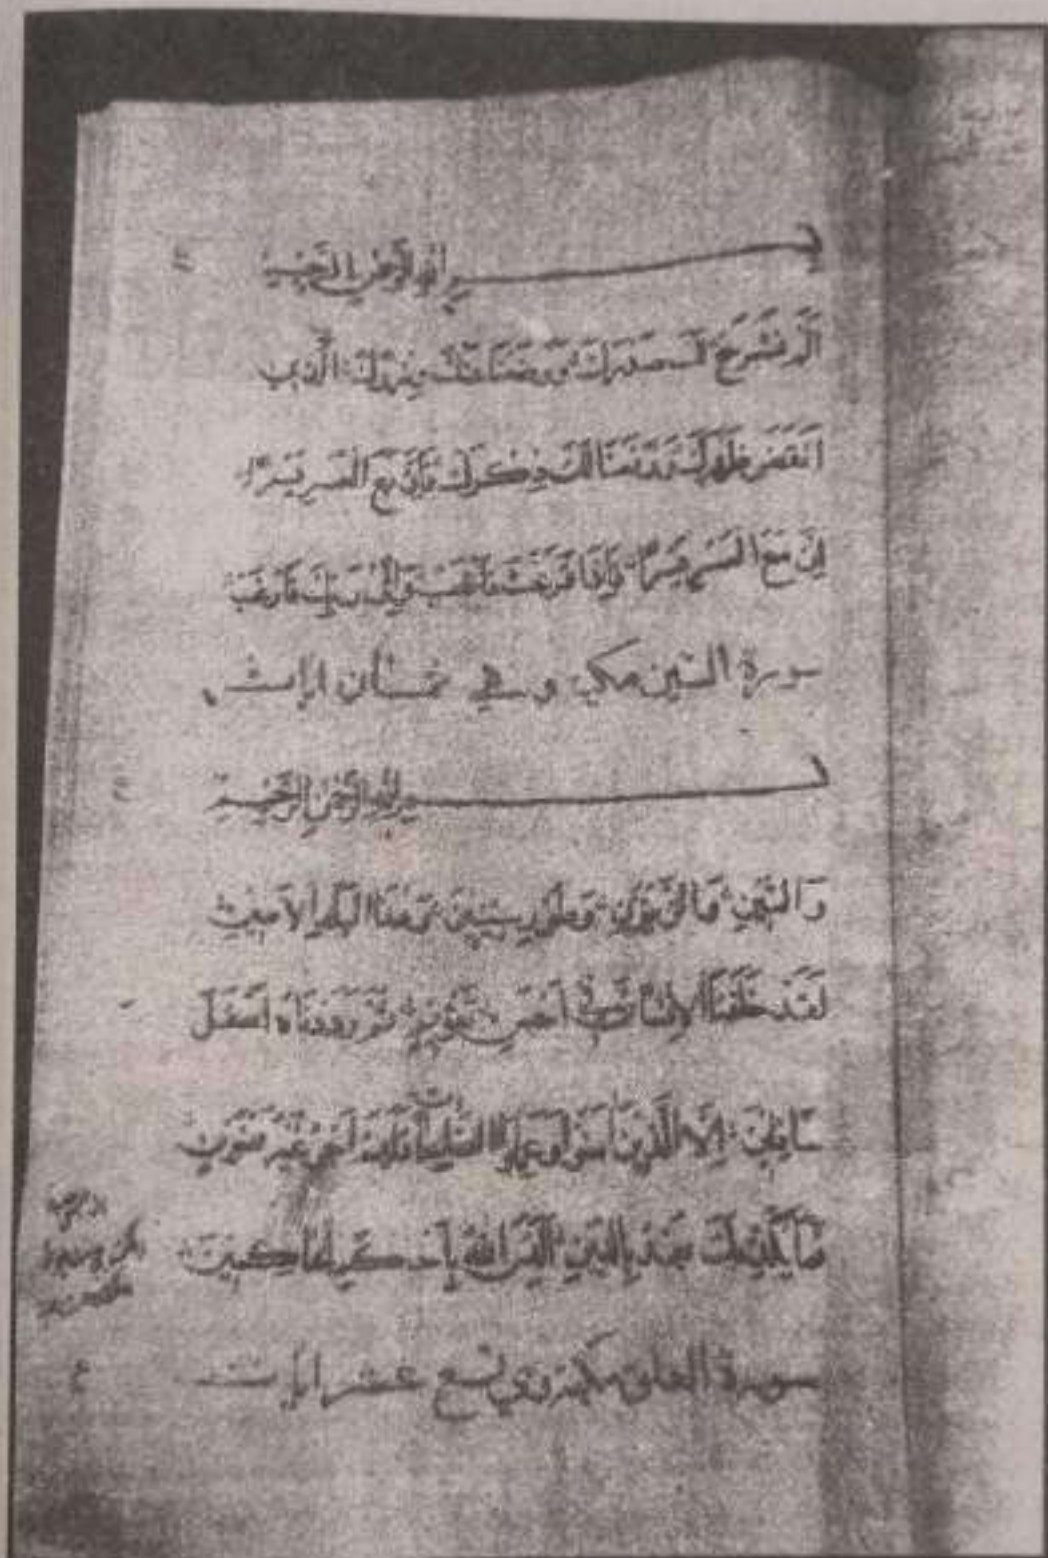 بسم الله الرحمن الرحيم
أَلَمْ نَشْرَحْ لَكَ صَدْرَكَ وَوَضَعْنَا عَنْكَ وِزْرَكَ الَّذِي
أَنْقَضَ ظَهْرَكَ وَرَفَعْنَا لَكَ ذِكْرَكَ فَإِنَّ مَعَ الْعُسْرِ يُسْرًا
إِنَّ مَعَ الْعُسْرِ يُسْرًا فَإِذَا فَرَغْتَ فَانْصَبْ وَإِلَى رَبِّكَ فَارْغَبْ
سورة التين مكي وهي ثمان ايات
بسم الله الرحمن الرحيم
وَالتِّينِ وَالزَّيْتُونِ وَطُورِ سِينِينَ وَهَذَا الْبَلَدِ الْأَمِينِ
لَقَدْ خَلَقْنَا الْإِنْسَانَ فِي أَحْسَنِ تَقْوِيمٍ ثُمَّ رَدَدْنَاهُ أَسْفَلَ
سَافِلِينَ إِلَّا الَّذِينَ آمَنُوا وَعَمِلُوا الصَّلِحَاتِ فَلَهُمْ أَجْرٌ غَيْرُ مَمْنُونٍ
فَمَا يُكَذِّبُكَ بَعْدُ بِالدِّينِ أَلَيْسَ اللَّهُ بِأَحْكَمِ الْحَاكِمِينَ
سورة العلق مكية وهي تسع عشر ايات